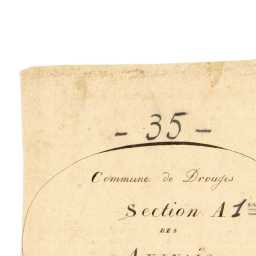 - 35 -
Commune de Drouges
Section A 1re
DES